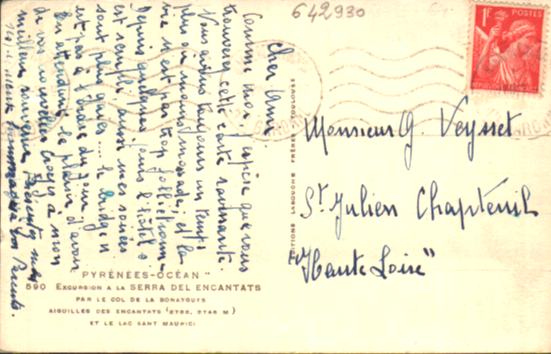 642930
1F POSTES
Cher Ami
Comme moi, j'espère que vous
trouverez cette carte ravissante.
Nous avons toujours un temps
plus ou moins maussade, et la
vie n'est pas trop folichonne
Depuis quelques jours l'hôtel s'
est rempli aussi nos soirées
sont plus gaies... le bridge n'
est pas à l'ordre du jour.
En attendant le plaisir d'avoir
de vos nouvelles croyez à mon
meilleur souvenir. Présentez mes
hommages à vos Parents.
ÉDITIONS LABOUCHE FRÈRES TOULOUSE
Monsieur G. Veysset
St Julien Chapteuil
"Haute Loire"
PYRÉNÉES-OCÉAN"
590 EXCURSION A LA SERRA DEL ENCANTATS
PAR LE COL DE LA BONAYGUTS
AIGUILLES DES ENCANTATS (2755, 2745 M)
ET LE LAC SANT MAURICI